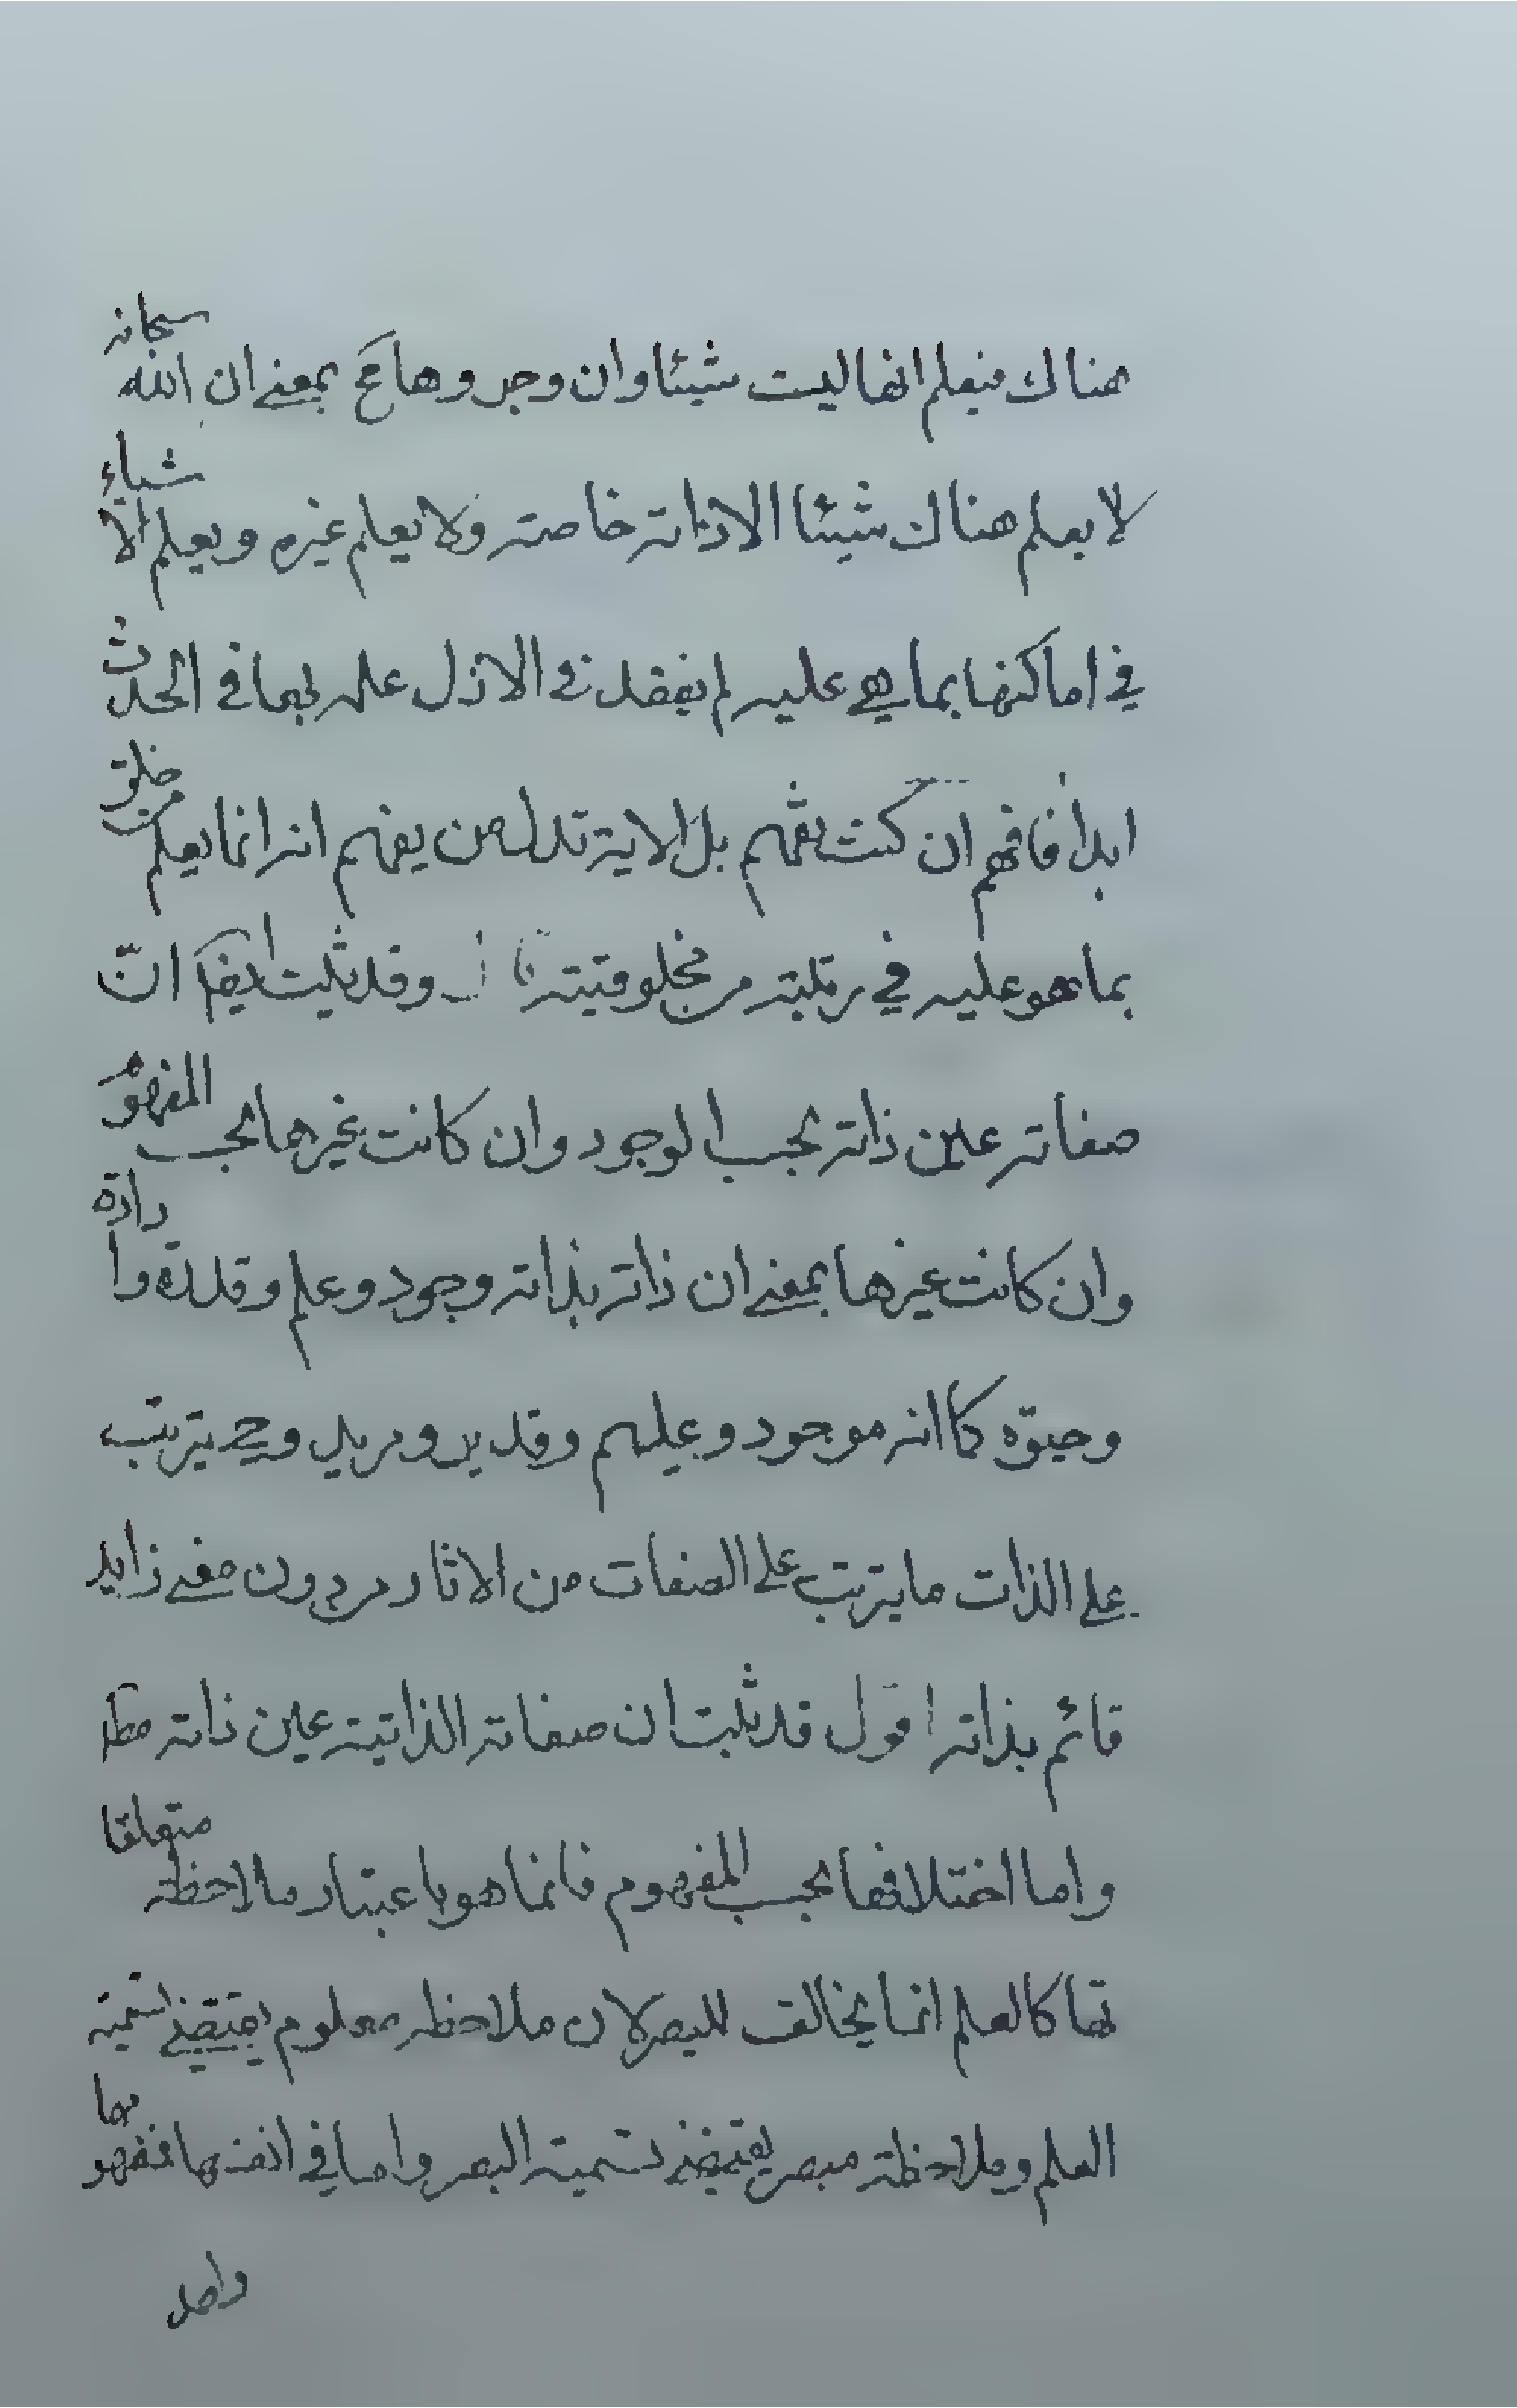 هناك فيعلم انها ليست شيئا وان وجروها ح بمعنى ان الله سبحانه
لا يعلم هناك شيئا الا ذاته خاصته ولا يعلم غيره ويعلم الاشياء
في اماكنها بما هي عليه لم يفقد في الازل علمه بها في الحدث
ابدا فافهم ان كنت تفهم بل الاية تدل من يفهم انه انما يعلم من خلق
بما هو عليه في رتبته من مخلوقيته قال وقد ثبت ايضا انّ
صفاته عين ذاته بحسب الوجود وان كانت غيرها بحسب المفهوم
وان كانت غيرها بمعنى ان ذاته بذاته وجود وعلم وقدرة وارادة
وحيوة كما انه موجود وعليم وقدير ومريد وحي يترتب
على الذات ما يترتب على الصفات من الاثار من دون معنى زايد
قائم بذاته اقول قد ثبت ان صفاته الذاتية عين ذاته مطلقا
واما اختلافها بحسب المفهوم فانما هو باعتبار ملاحظة متعلقا
تها كالعلم انما يخالف للبصر لان ملاحظة معلوم يقتضي تسمية
العلم وملاحظة مبصر يقتضي تسمية البصر واما في انفسها فمفهومها
واحد